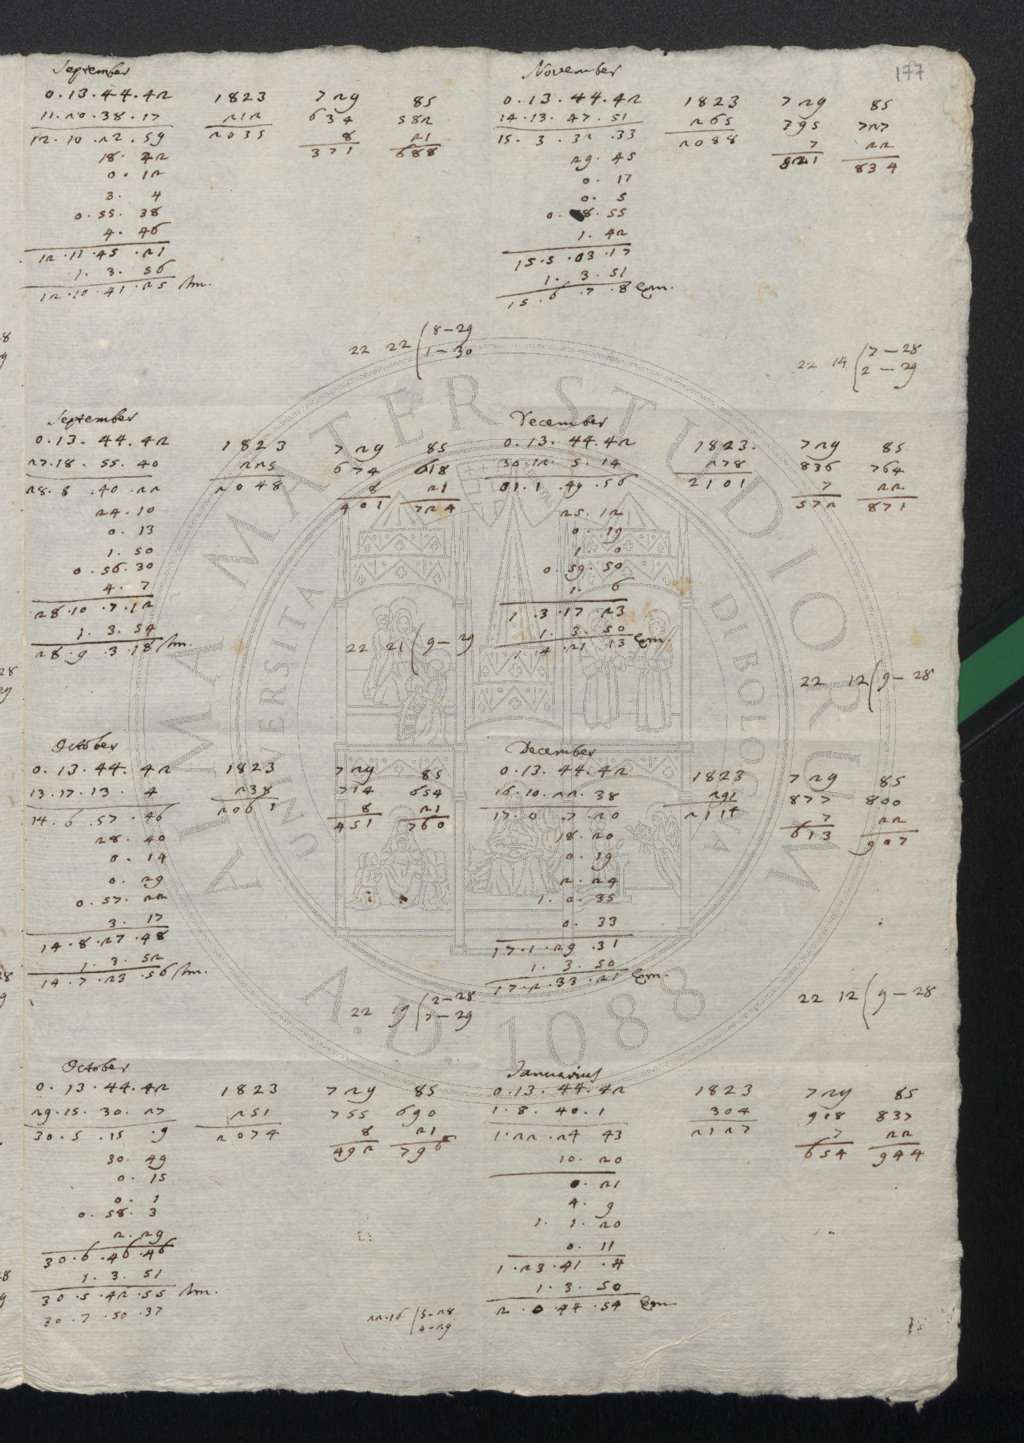 177
September
0.13.44.42 1823 729 85
11.20.38.17 212 634 582
12.10.22.59 2035 8 21
18.42 371 688
0.12
3. 4
0.55.38
4.46
12.11.45.21
1.3.56
12.10.41.25
22 22 (8-29
1-30
November
0.13.44.42 1823 729 85
14.13.47.51 265 395 727
15.3.32.33 2088 7 22
29.45 821 834
0.17
0.5
55
1.42
15.5.03.17
1.3.51
15.6.7.8
22 14 (7-28
2-29
September
0.13.44.42 1823 729 85
27.18.55.40 225 674 618
28.8.40.22 2048 8 21
24.10 401 724
0.13
1.50
0.56.30
4.7
28.10.7.12
1.3.54
28.9.3.18
22 21 (9-29
December
0.13.44.42 1823. 729 85
30.12.5.14 278 836 764
31.1.49.56 2101 7 22
25.12 572 871
0.19
1.0
0.59.50
1.6
1.3.17.23
1.3.50
4.21.13
22 12 (9-28
October
0.13.44.42 1823 729 85
13.17.13.4 238 714 654
14.6.57.46 2061 8 21
28.40 451 760
0.14
0.29
0.57.22
3.17
14.8.27.48
1.3.52
14.7.23.56
22 19 (2-28
7-29
December
0.13.44.42 1823 729 85
16.10.22.38 291 877 800
17.0.7.20 2114 7 22
18.20 613 907
0.19
2.24
1.0.35
0.33
17.1.29.31
1.3.50
17.2.33.21
22 12 (9-28
October
0.13.44.42 1823 729 85
29.15.30.27 251 755 690
30.5.15.9 2074 8 21
30.49 492 796
0.15
0.1
0.58.3
2.29
30.6.46.46
1.3.51
30.5.42.55
30.7.50.37
22.16 (5-28
4-29
Januarius
0.13.44.42 1823 729 85
1.8.40.1 304 918 837
1.22.24.43 2127 7 22
10.20 654 944
0.21
4.9
1.1.20
0.11
1.23.41.4
1.3.50
2.0.44.54
ALMA MATER STUDIORUM
UNIVERSITA DI BOLOGNA
A.D. 1088